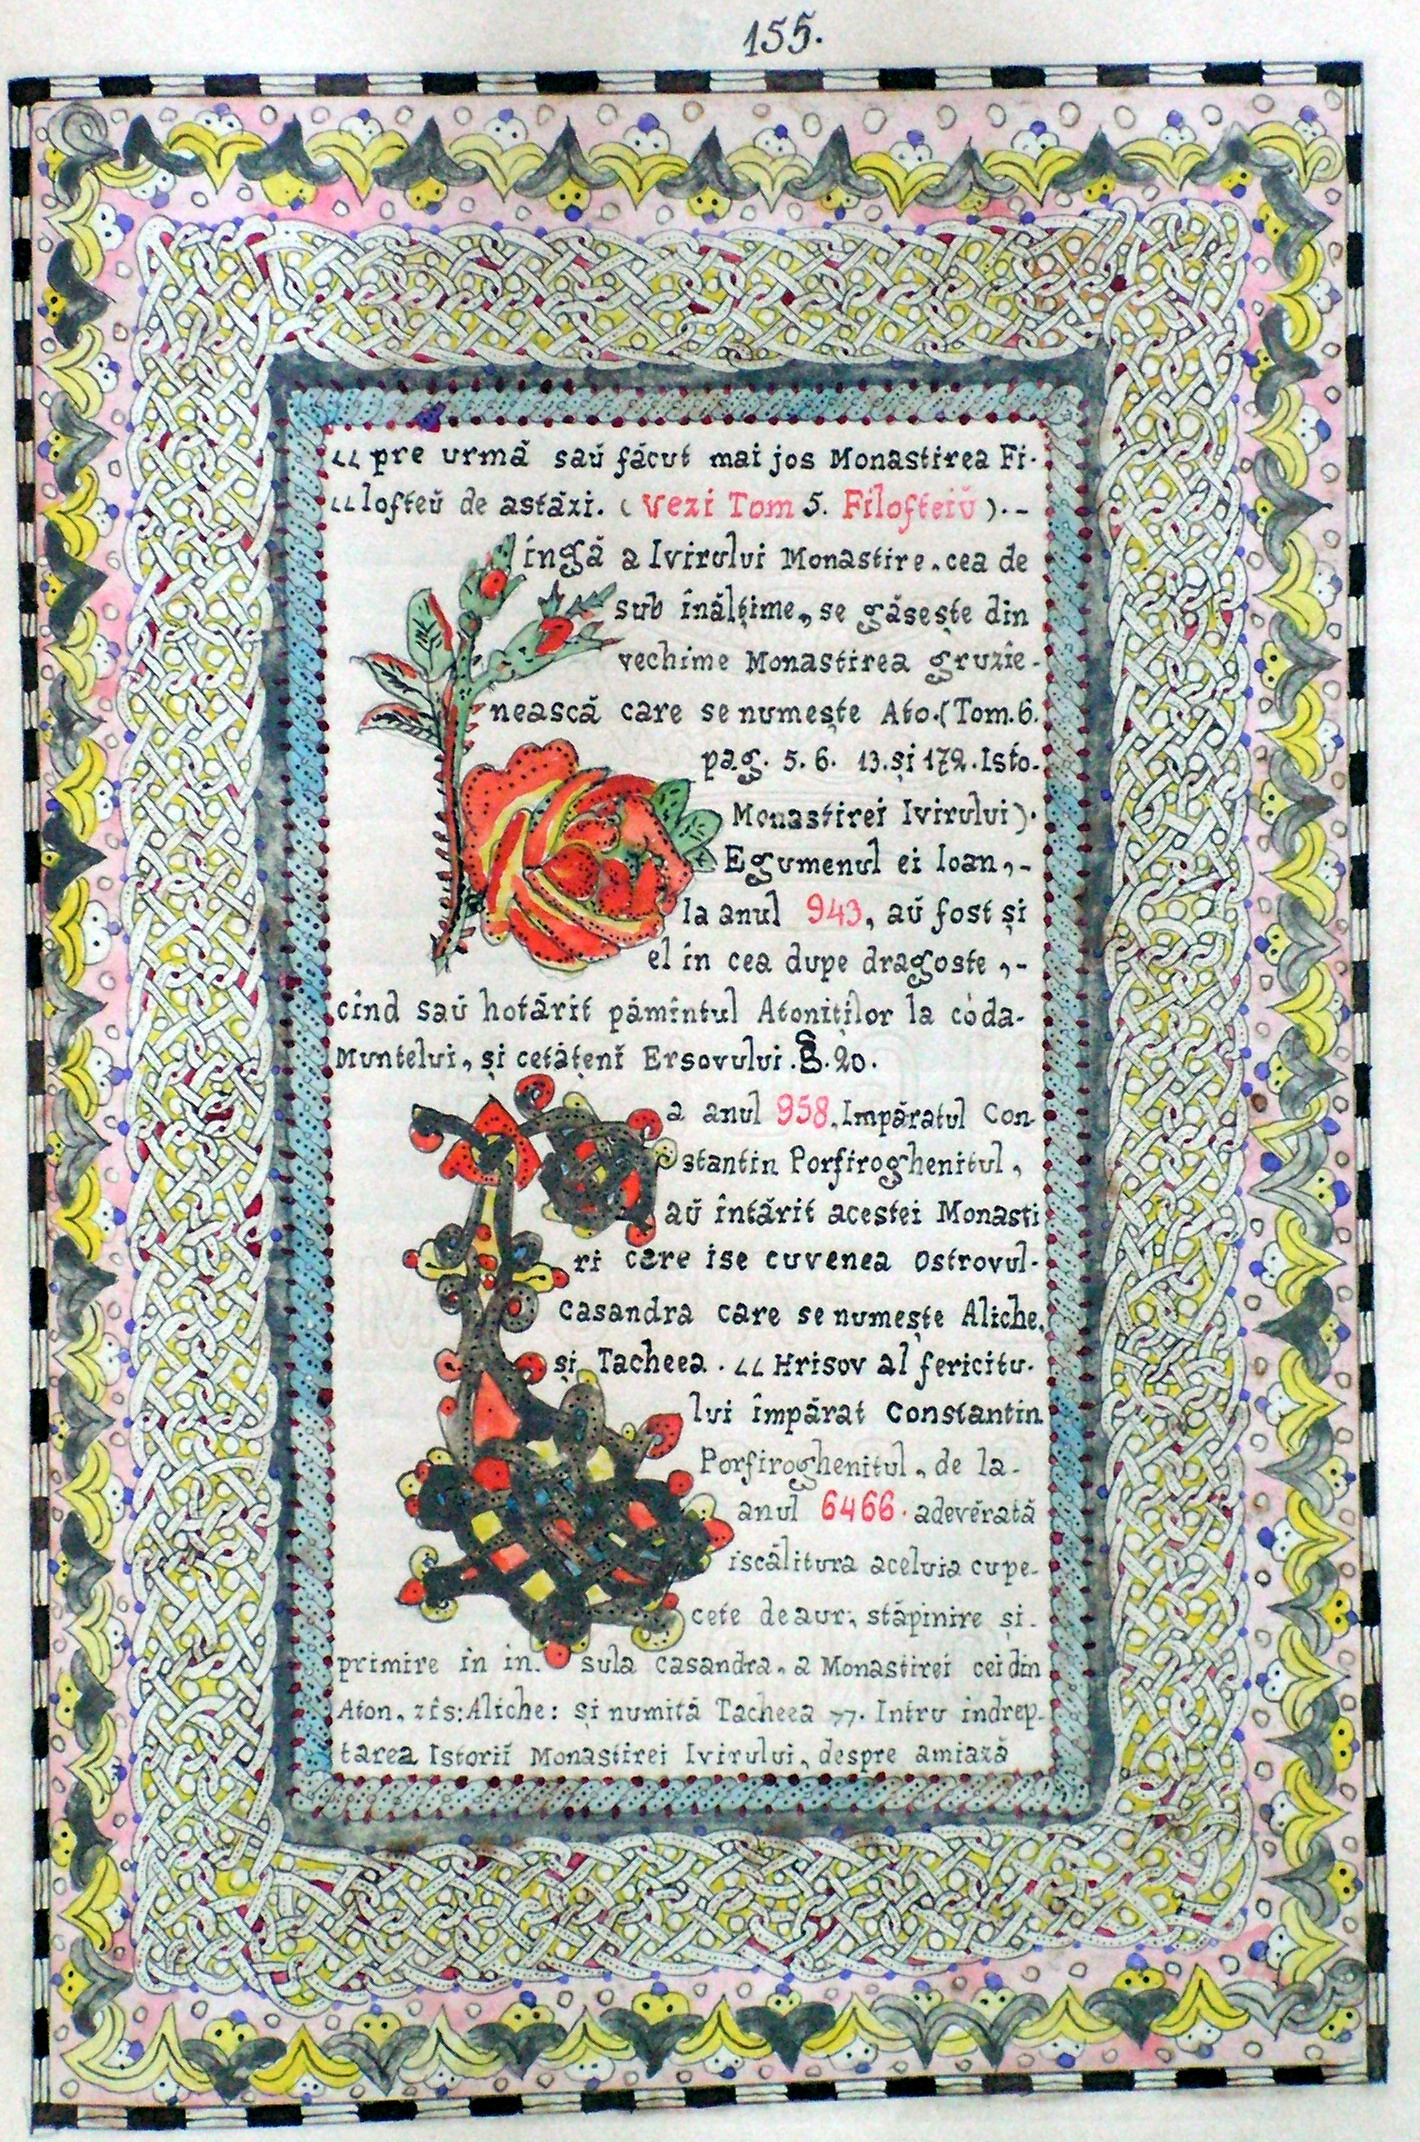 155.
„ pre urmă saŭ făcut mai jos Monastirea Fi-
„lofteŭ de astăzi. (Vezi Tom 5. Filofteiŭ).-
Lîngă a Ivirului Monastire, cea de
sub înălțime, se găsește din
vechime Monastirea gruzie-
nească care se numește Ato. (Tom. 6.
pag. 5. 6. 13. și 172. Isto-
Monastirei Ivirului).
Egumenul ei Ioan,-
la anul 943, aŭ fost și
el în cea dupe dragoste,-
cînd saŭ hotărît pămîntul Atoniților la coda-
Muntelui, și cetățenĭ Ersovului. 20.
La anul 958. Impăratul Con-
stantin Porfiroghenitul,
aŭ întărit acestei Monasti
ri care ise cuvenea Ostrovul-
Casandra care se numește Aliche,
și Tacheea. „ Hrisov al fericitu-
lui împărat Constantin
Porfiroghenitul, de la-
anul 6466. adevĕrată
iscălitura aceluia cu pe-
cete de aur, stăpinire și-
primire în in. sula casandra, a Monastirei cei din
Aton, zîs: Aliche: și numită Tacheea ”. Intru indrep-
tarea Istorii Monastirei Ivirului, despre amiază